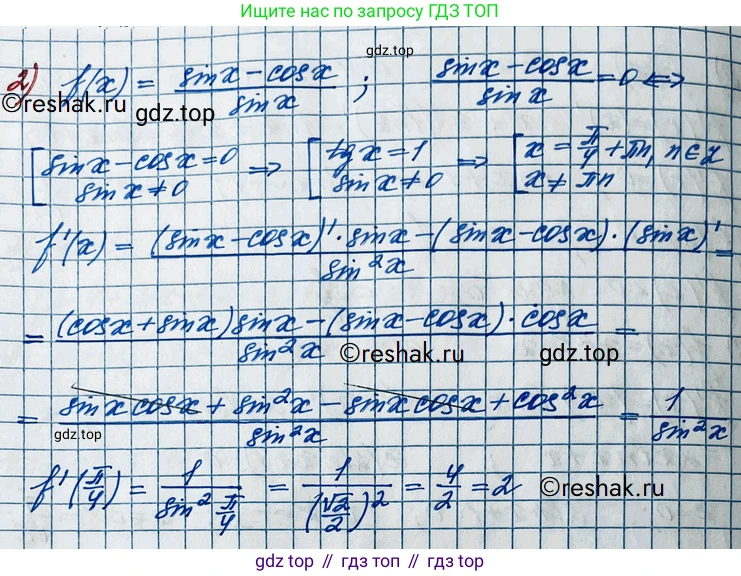 Ищите нас по запросу ГДЗ ТОП
2) f(x) = (sinx-cosx)/sinx ; (sinx-cosx)/sinx = 0 <=>
gdz.top
©reshak.ru gdz.top ©reshak.ru
[ sinx-cosx=0 => [ tgx=1 => [ x=π/4+πn, n∈z
sinx≠0 sinx≠0 x≠ πn
f'(x) = ((sinx-cosx)'·sinx-(sinx-cosx)·(sinx)')/sin²x =
= ((cosx+sinx)sinx-(sinx-cosx)·cosx)/sin²x =
©reshak.ru gdz.top
= (sinxcosx+sin²x-sinxcosx+cos²x)/sin²x = 1/sin²x
gdz.top
f'(π/4) = 1/sin²π/4 = 1/(√2/2)² = 4/2 = 2 ©reshak.ru
gdz top // гдз топ // гдз top